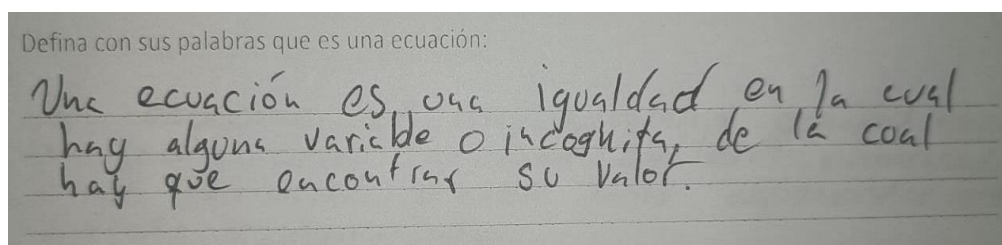 Defina con sus palabras que es una ecuación:
Una ecuación es una igualdad en la cual
hay alguna variable o incognita, de la cual
hay que encontrar su valor.